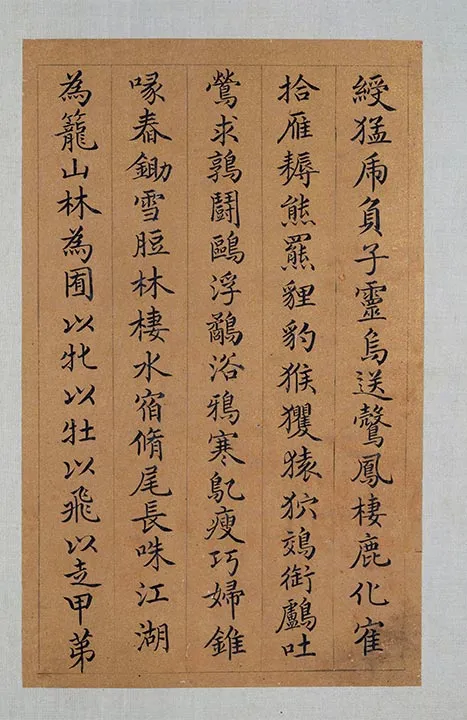 綬猛乕負子靈烏送鳳棲鹿化寉
拾雁耨熊羆貍豹猴玃猿狖鵁銜鸕吐
鶯求鶉鬪鷗浮浴鴉寒鳦瘦巧婦錐
喙舂鋤雪脰林棲水宿脩尾長咮江湖
為籠山林為囿以牝以牡以飛以走甲第